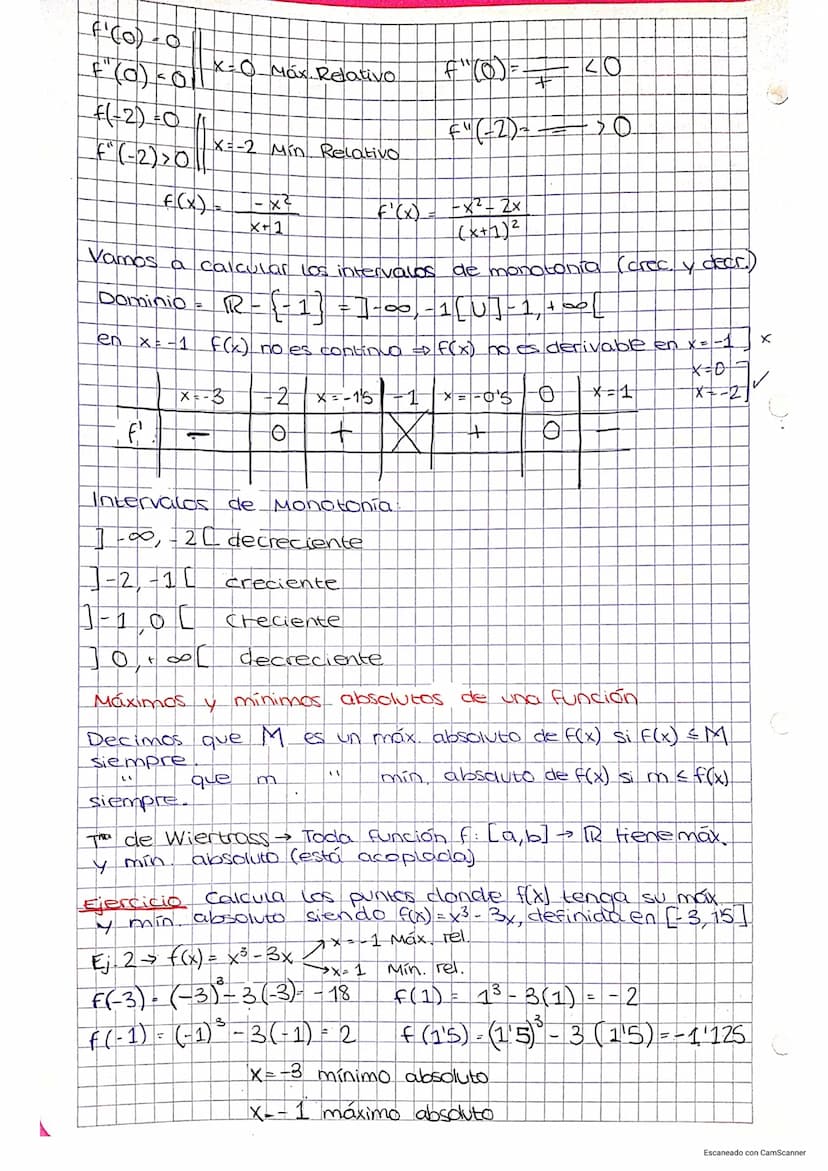 f'(0) = 0
f''(0) < 0 || x=0 Máx. Relativo f''(0) = —/+ < 0
f(-2) = 0
f''(-2) > 0 || x=-2 Mín. Relativo f''(-2) = —/— > 0
f(x) = -x²/(x+1) f'(x) = (-x² - 2x)/(x+1)²
Vamos a calcular los intervalos de monotonía (crec. y decr.)
Dominio = ℝ - {-1} = ]-∞, -1[ U ]-1, +∞[
en x=-1 f(x) no es continua ⇒ f(x) no es derivable en x=-1 ] x
x=0
x=-2 ] ✓
x=-3 -2 x=-1'5 -1 x=-0'5 0 x=1
f' - 0 + X + 0 -
Intervalos de Monotonía:
]-∞, -2[ decreciente
]-2, -1[ creciente
]-1, 0[ creciente
]0, +∞[ decreciente
Máximos y mínimos absolutos de una función
Decimos que M es un máx. absoluto de f(x) si f(x) ≤ M
siempre.
" que m " mín. absoluto de f(x) si m ≤ f(x)
siempre.
Tma de Wiertrass → Toda función f: [a,b] → ℝ tiene máx.
y mín. absoluto (está acoplada)
Ejercicio Calcula los puntos donde f(x) tenga su máx.
y mín. absoluto siendo f(x) = x³ - 3x, definida en [-3, 1'5]
Ej. 2 → f(x) = x³ - 3x ↗ x=-1 Máx. rel.
↘ x=1 Mín. rel.
f(-3) = (-3)³ - 3(-3) = -18 f(1) = 1³ - 3(1) = -2
f(-1) = (-1)³ - 3(-1) = 2 f(1'5) = (1'5)³ - 3(1'5) = -1'125
x=-3 mínimo absoluto
x=-1 máximo absoluto
Escaneado con CamScanner